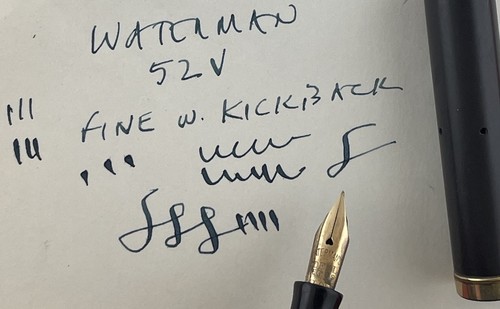 WATERMAN
52V
FINE W. KICKBACK